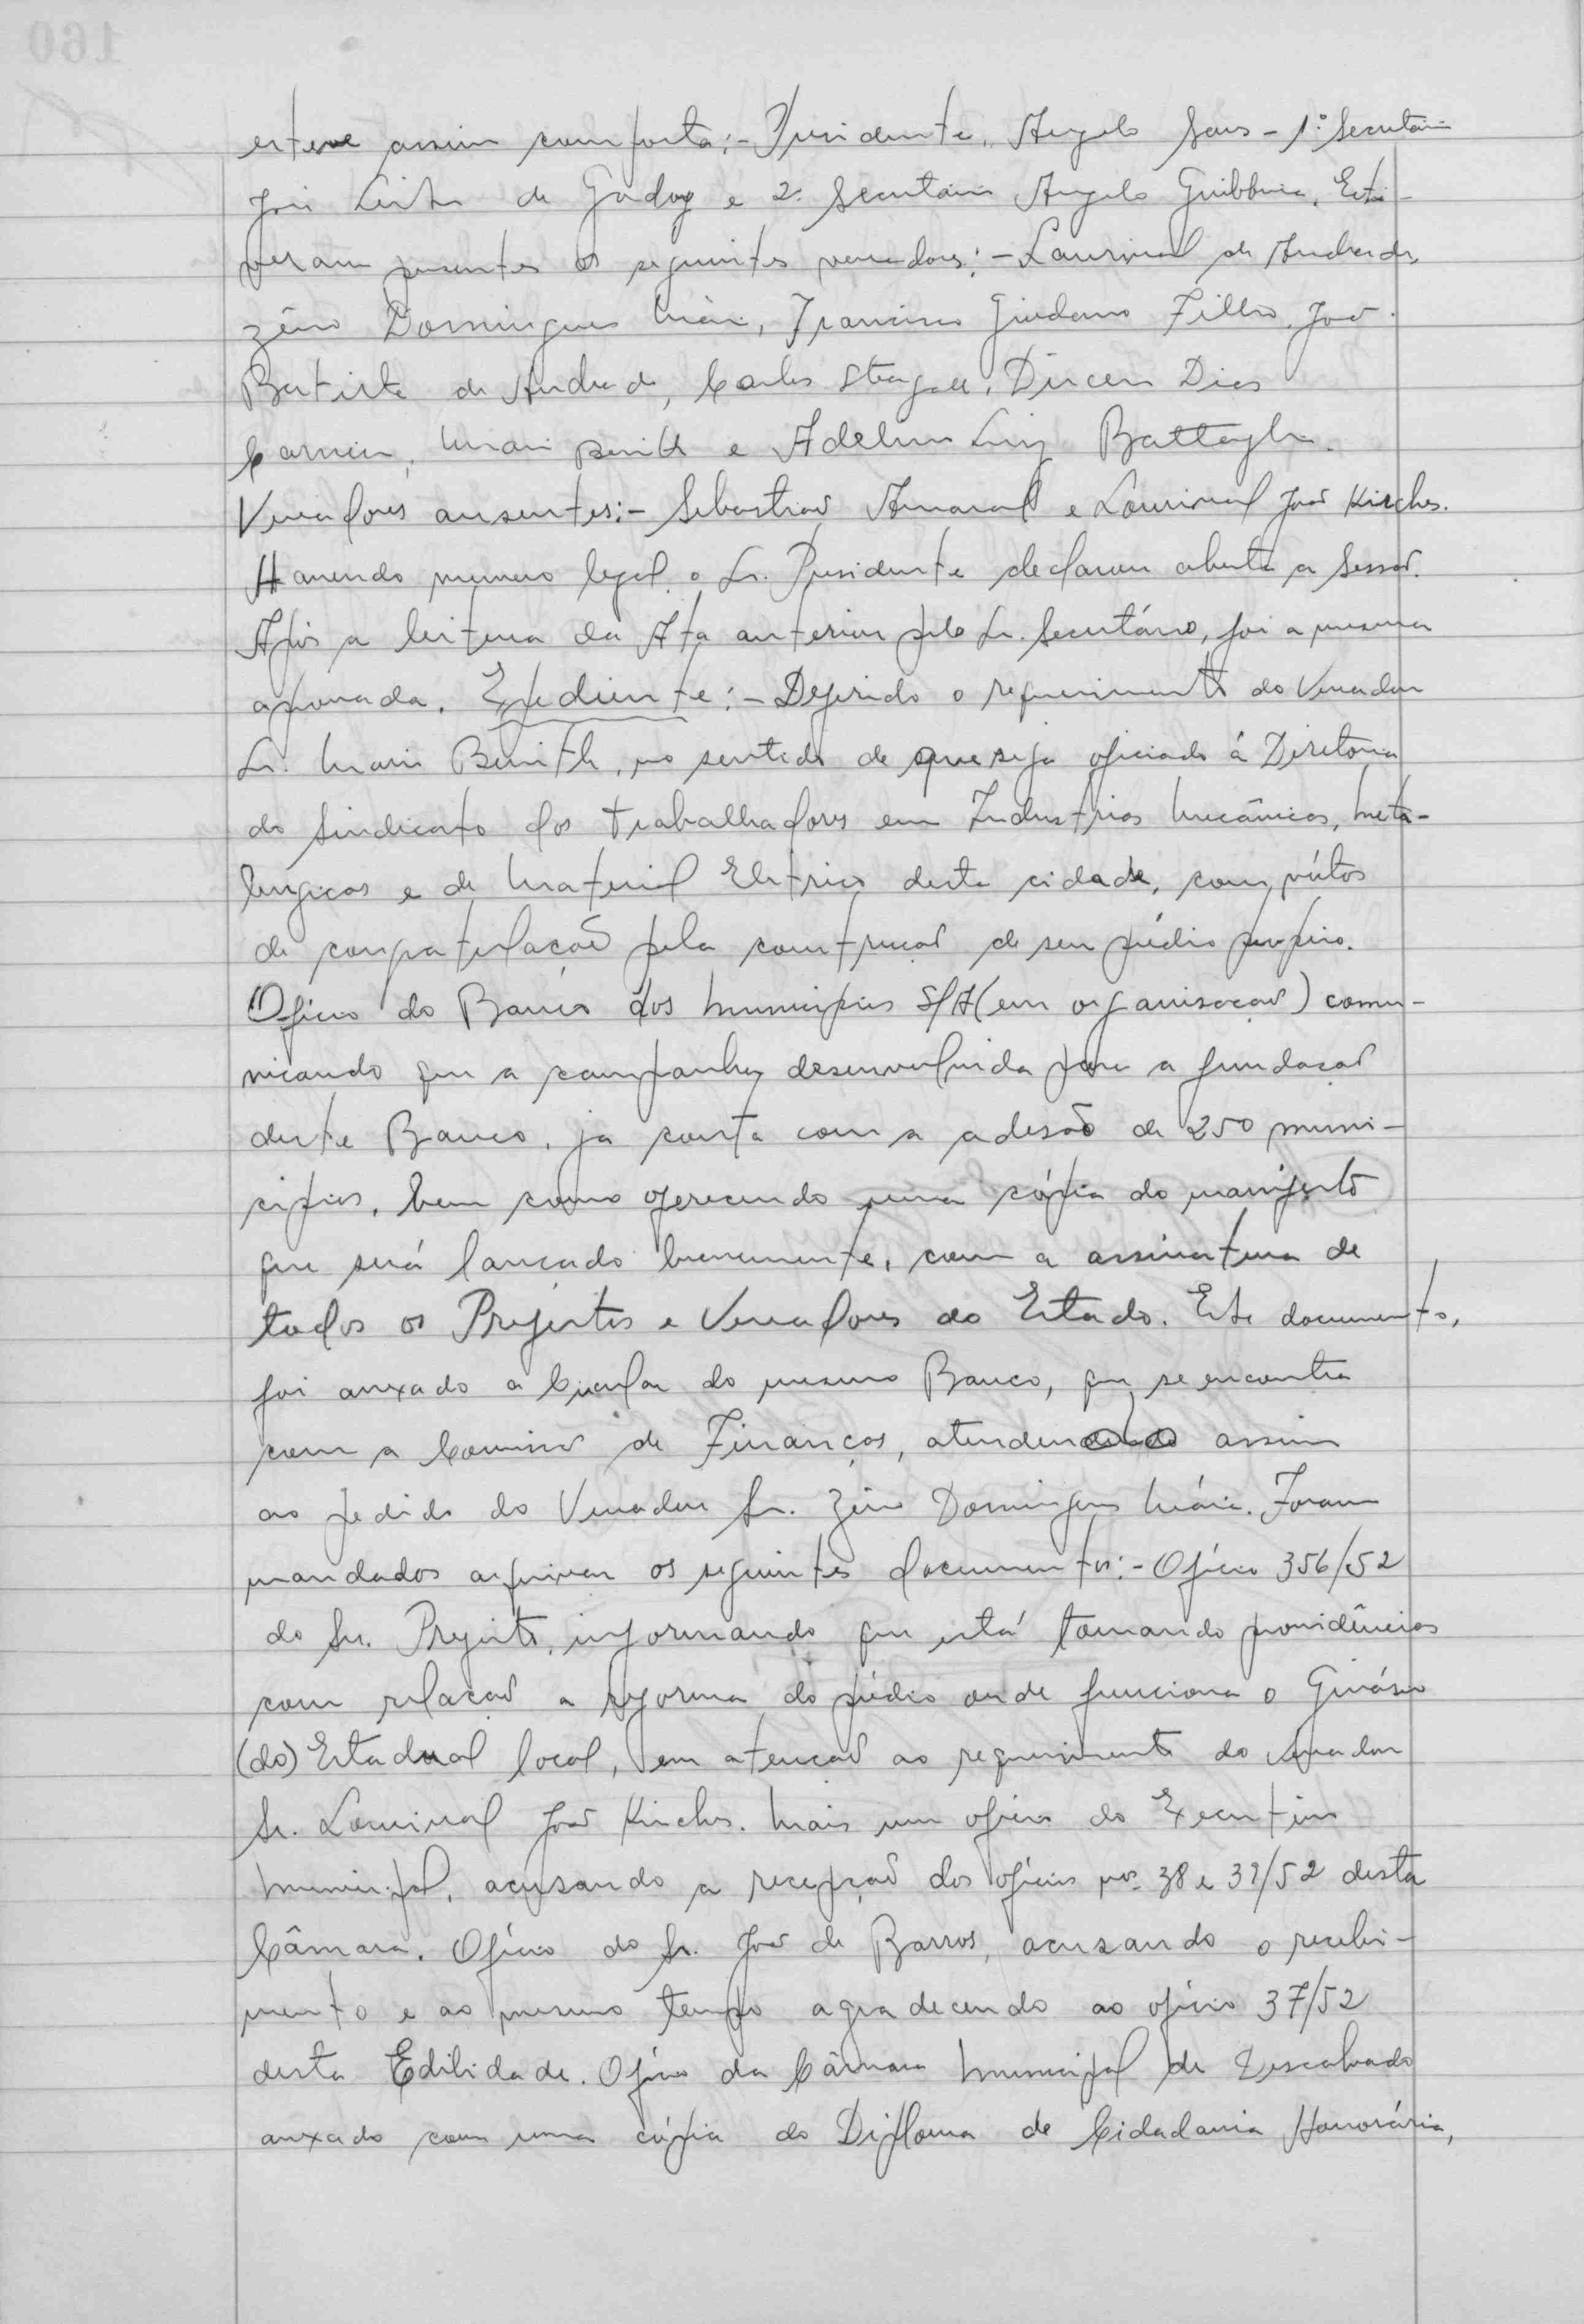 esteve assim composta:- Presidente, Angelo Saus - 1º Secretário
José Leite de Godoy e 2º Secretario Angelo Gribbin. Esti-
veram presentes os seguintes vereadores:- Laurival de Andrade,
Zêno Domingues Maia, Francisco Giordano Filho, João
Batista de Andrade, Carlos Stragal, Dirceu Dias
Carneiro, Mario Benith e Adelmo Luiz Battaglia.
Vereadores ausentes:- Sebastião Amaral e Lourival João Kirches.
Havendo numero legal, o Sr. Presidente declarou aberta a Sessão.
Após a leitura da Ata anterior pelo Sr. Secretário, foi a mesma
aprovada. Expediente:- Deferido o requerimento do Vereador
Sr. Mario Benith, no sentido de que seja oficiado á Diretoria
do Sindicato dos trabalhadores em Industrias Mecânicas, Meta-
lurgicas e de Material Eletrico desta cidade, com vótos
de congratulação pela construção de seu prédio proprio.
Oficio do Banco dos Municipios S/A (em organisação) comu-
nicando que a campanha desenvolvida para a fundação
deste Banco, ja conta com a adesão de 250 muni-
cipios, bem como oferecendo uma cópia do manifesto
que será lançado brevemente, com a assinatura de
todos os Prefeitos e Vereadores do Estado. Este documento,
foi anexado a Circular do mesmo Banco, que se encontra
com a Comissão de Finanças, atendendo assim
ao pedido do Vereador Sr. Zêno Domingues Maia. Foram
mandados arquivar os seguintes documentos:- Oficio 356/52
do Sr. Prefeito, informando que está tomando providências
com relação a reforma do prédio onde funciona o Ginásio
(do) Estadual local, em atenção ao requerimento do Vereador
Sr. Lourival João Kirches. Mais um oficio do Executivo
Municipal, acusando a recepção dos ofícios nºs 38 e 39/52 desta
Câmara. Ofício do Sr. João de Barros, acusando o recebi-
mento e ao mesmo tempo agradecendo ao ofício 37/52
desta Edilidade. Ofício da Câmara Municipal de Descalvado
anexado com uma cópia do Diploma de Cidadania Honorária,